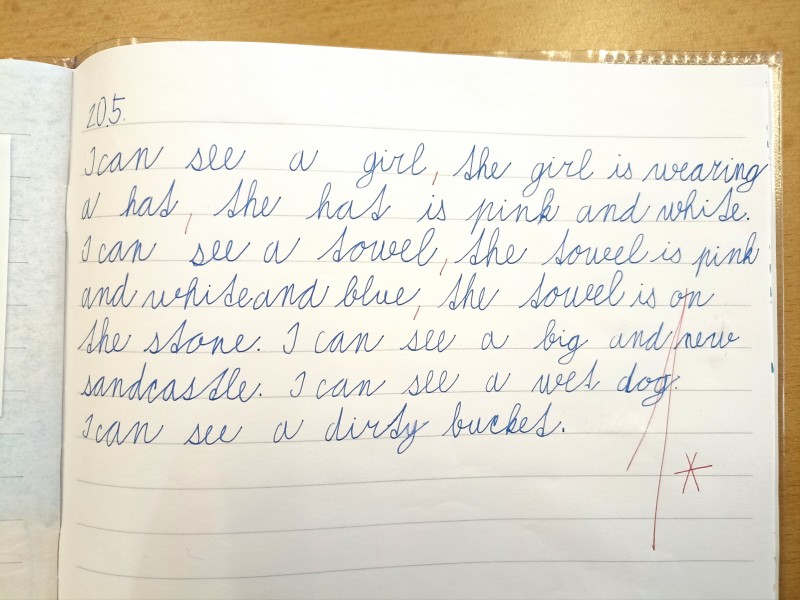 20.5.
I can see a girl, the girl is wearing
a hat, the hat is pink and white.
I can see a towel, the towel is pink
and white and blue, the towel is on
the stone. I can see a big and new
sandcastle. I can see a wet dog.
I can see a dirty bucket.